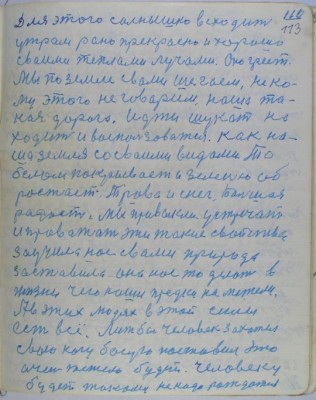 113
Для этого солнышко всходит
утрам рано прекрасно и хорошо
своими теплами лучами. Оно греет.
Мы по земле с вами шегаем, неко-
му этого не говарим, наша та-
кая дорога. Идти искат на
ходит и воспользоватся. Как на-
ша земля со своими видами. То
белом покрывает и зеленю об
ростает. Трава и снег,
радость. Мы привыкли, устречат
и праважат эти такие свойства
заучила нас с вами природа
заставила она нас то делат в
жизни чего наши предки не
На этих людях в этой
ест всё. Любой человек захотел
свою ногу босую поставил это
очен тижело будет. Человеку
будет такому не надо рождатся